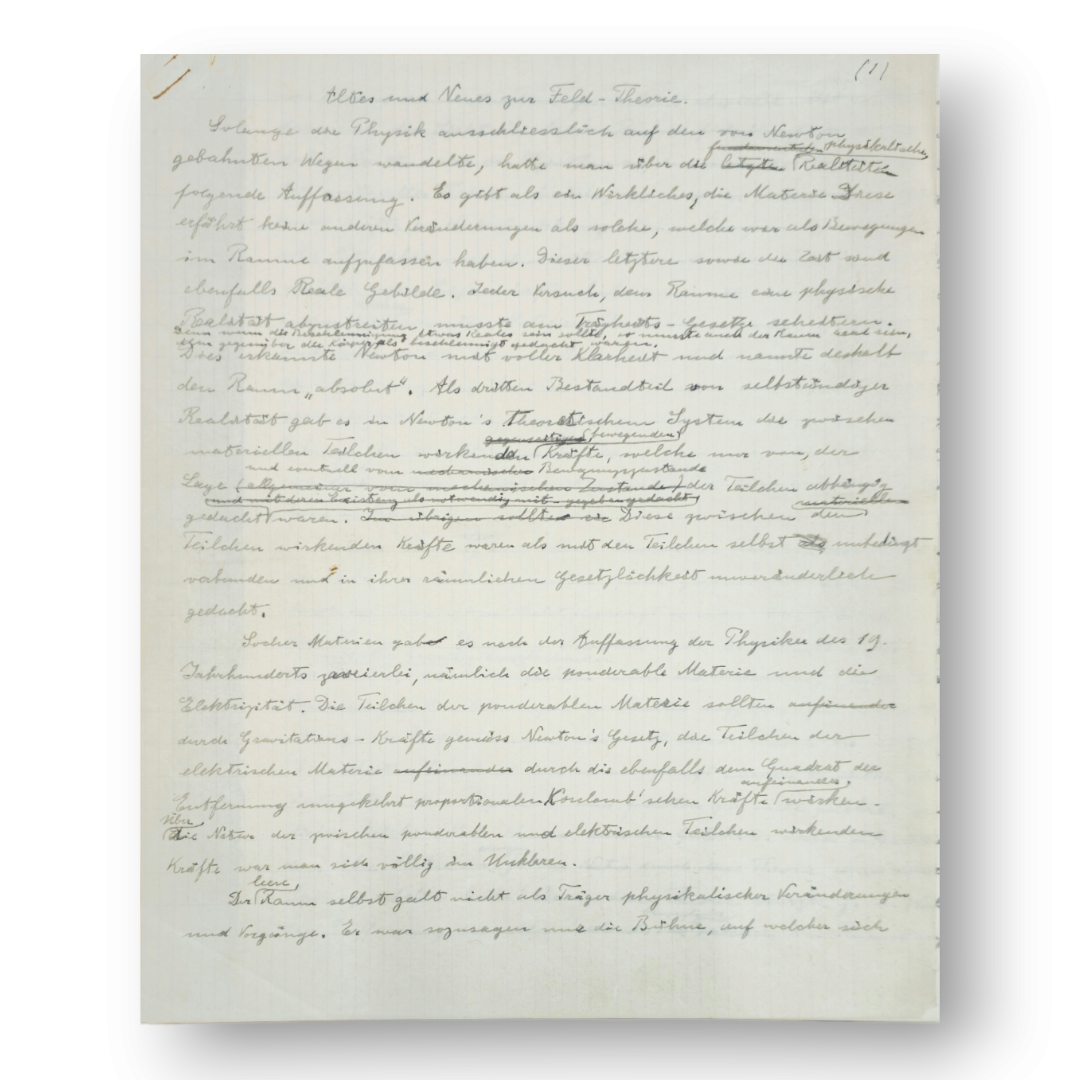 (1)
Altes und Neues zur Feld-Theorie.
Solange die Physik ausschliesslich auf den von Newton
physikalischen
gebahnten Wegen wandelte, hatte man über die letzten Realitäten
folgende Auffassung. Es gibt als ein Wirkliches, die Materie. Diese
erfährt keine anderen Veränderungen als solche, welche wir als Bewegungen
im Raume aufzufassen haben. Dieser letztere sowie die Zeit sind
ebenfalls Reale Gebilde. Jeder Versuch, dem Raume eine physische
Realität abzustreiten, musste am Trägheits-Gesetze scheitern.
Denn wenn die Beschleunigung etwas Reales sein sollte, so musste auch der Raum real sein,
gegenüber die Körper als beschleunigt gedacht wurden.
Dies erkannte Newton mit voller Klarheit und nannte deshalb
den Raum „absolut“. Als dritten Bestandteil von selbständiger
Realität gab es in Newton's Theoretischem System die zwischen
gegenseitigen (bewegenden)
materiellen Teilchen wirkenden Kräfte, welche nur von der
und eventuell vom mechanischen Bewegungszustande
Lage (allgemeinge vom mechanischen Zustande) der Teilchen abhängig
und mit deren Existenz als notwendig mit-gegeben gedacht materiellen
gedacht waren. Im übrigen sollten sie Diese zwischen den
Teilchen wirkenden Kräfte waren als mit den Teilchen selbst unbedingt
verbunden und in ihrer räumlichen Gesetzlichkeit unveränderlich
gedacht.
Socher Materien gab es nach der Auffassung der Physiker des 19.
Jahrhunderts zweierlei, nämlich die ponderable Materie und die
Elektrizität. Die Teilchen der ponderablen Materie sollten aufeinander
durch Gravitations-Kräfte gemäss Newton's Gesetz, die Teilchen der
elektrischen Materie aufeinander durch die ebenfalls dem Quadrat der
aufeinander
Entfernung umgekehrt proportionalen Koulomb'schen Kräfte wirken.
Über
die Natur der zwischen ponderablen und elektrischen Teilchen wirkenden
Kräfte war man sich völlig im Unklaren.
leere
Der Raum selbst galt nicht als Träger physikalischer Veränderungen
und Vorgänge. Er war sozusagen nur die Bühne, auf welcher sich